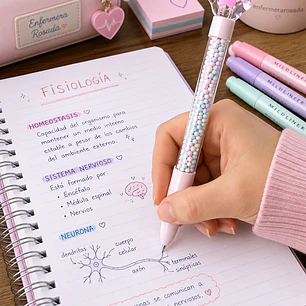 Enfermera
Rosada
Enfermera
Rosada
FISIOLOGÍA
HOMEOSTASIS
capacidad del organismo para
mantener un medio interno
estable a pesar de los cambios
del ambiente externo.
SISTEMA NERVIOSO
Está formado por:
• Encéfalo
• Médula espinal
• Nervios
NEURONA
dendritas
cuerpo
celular
axón
terminales
sinápticas
se comunican a
nerviosos.
MILDLINER
MILDLINER
MILDLINER